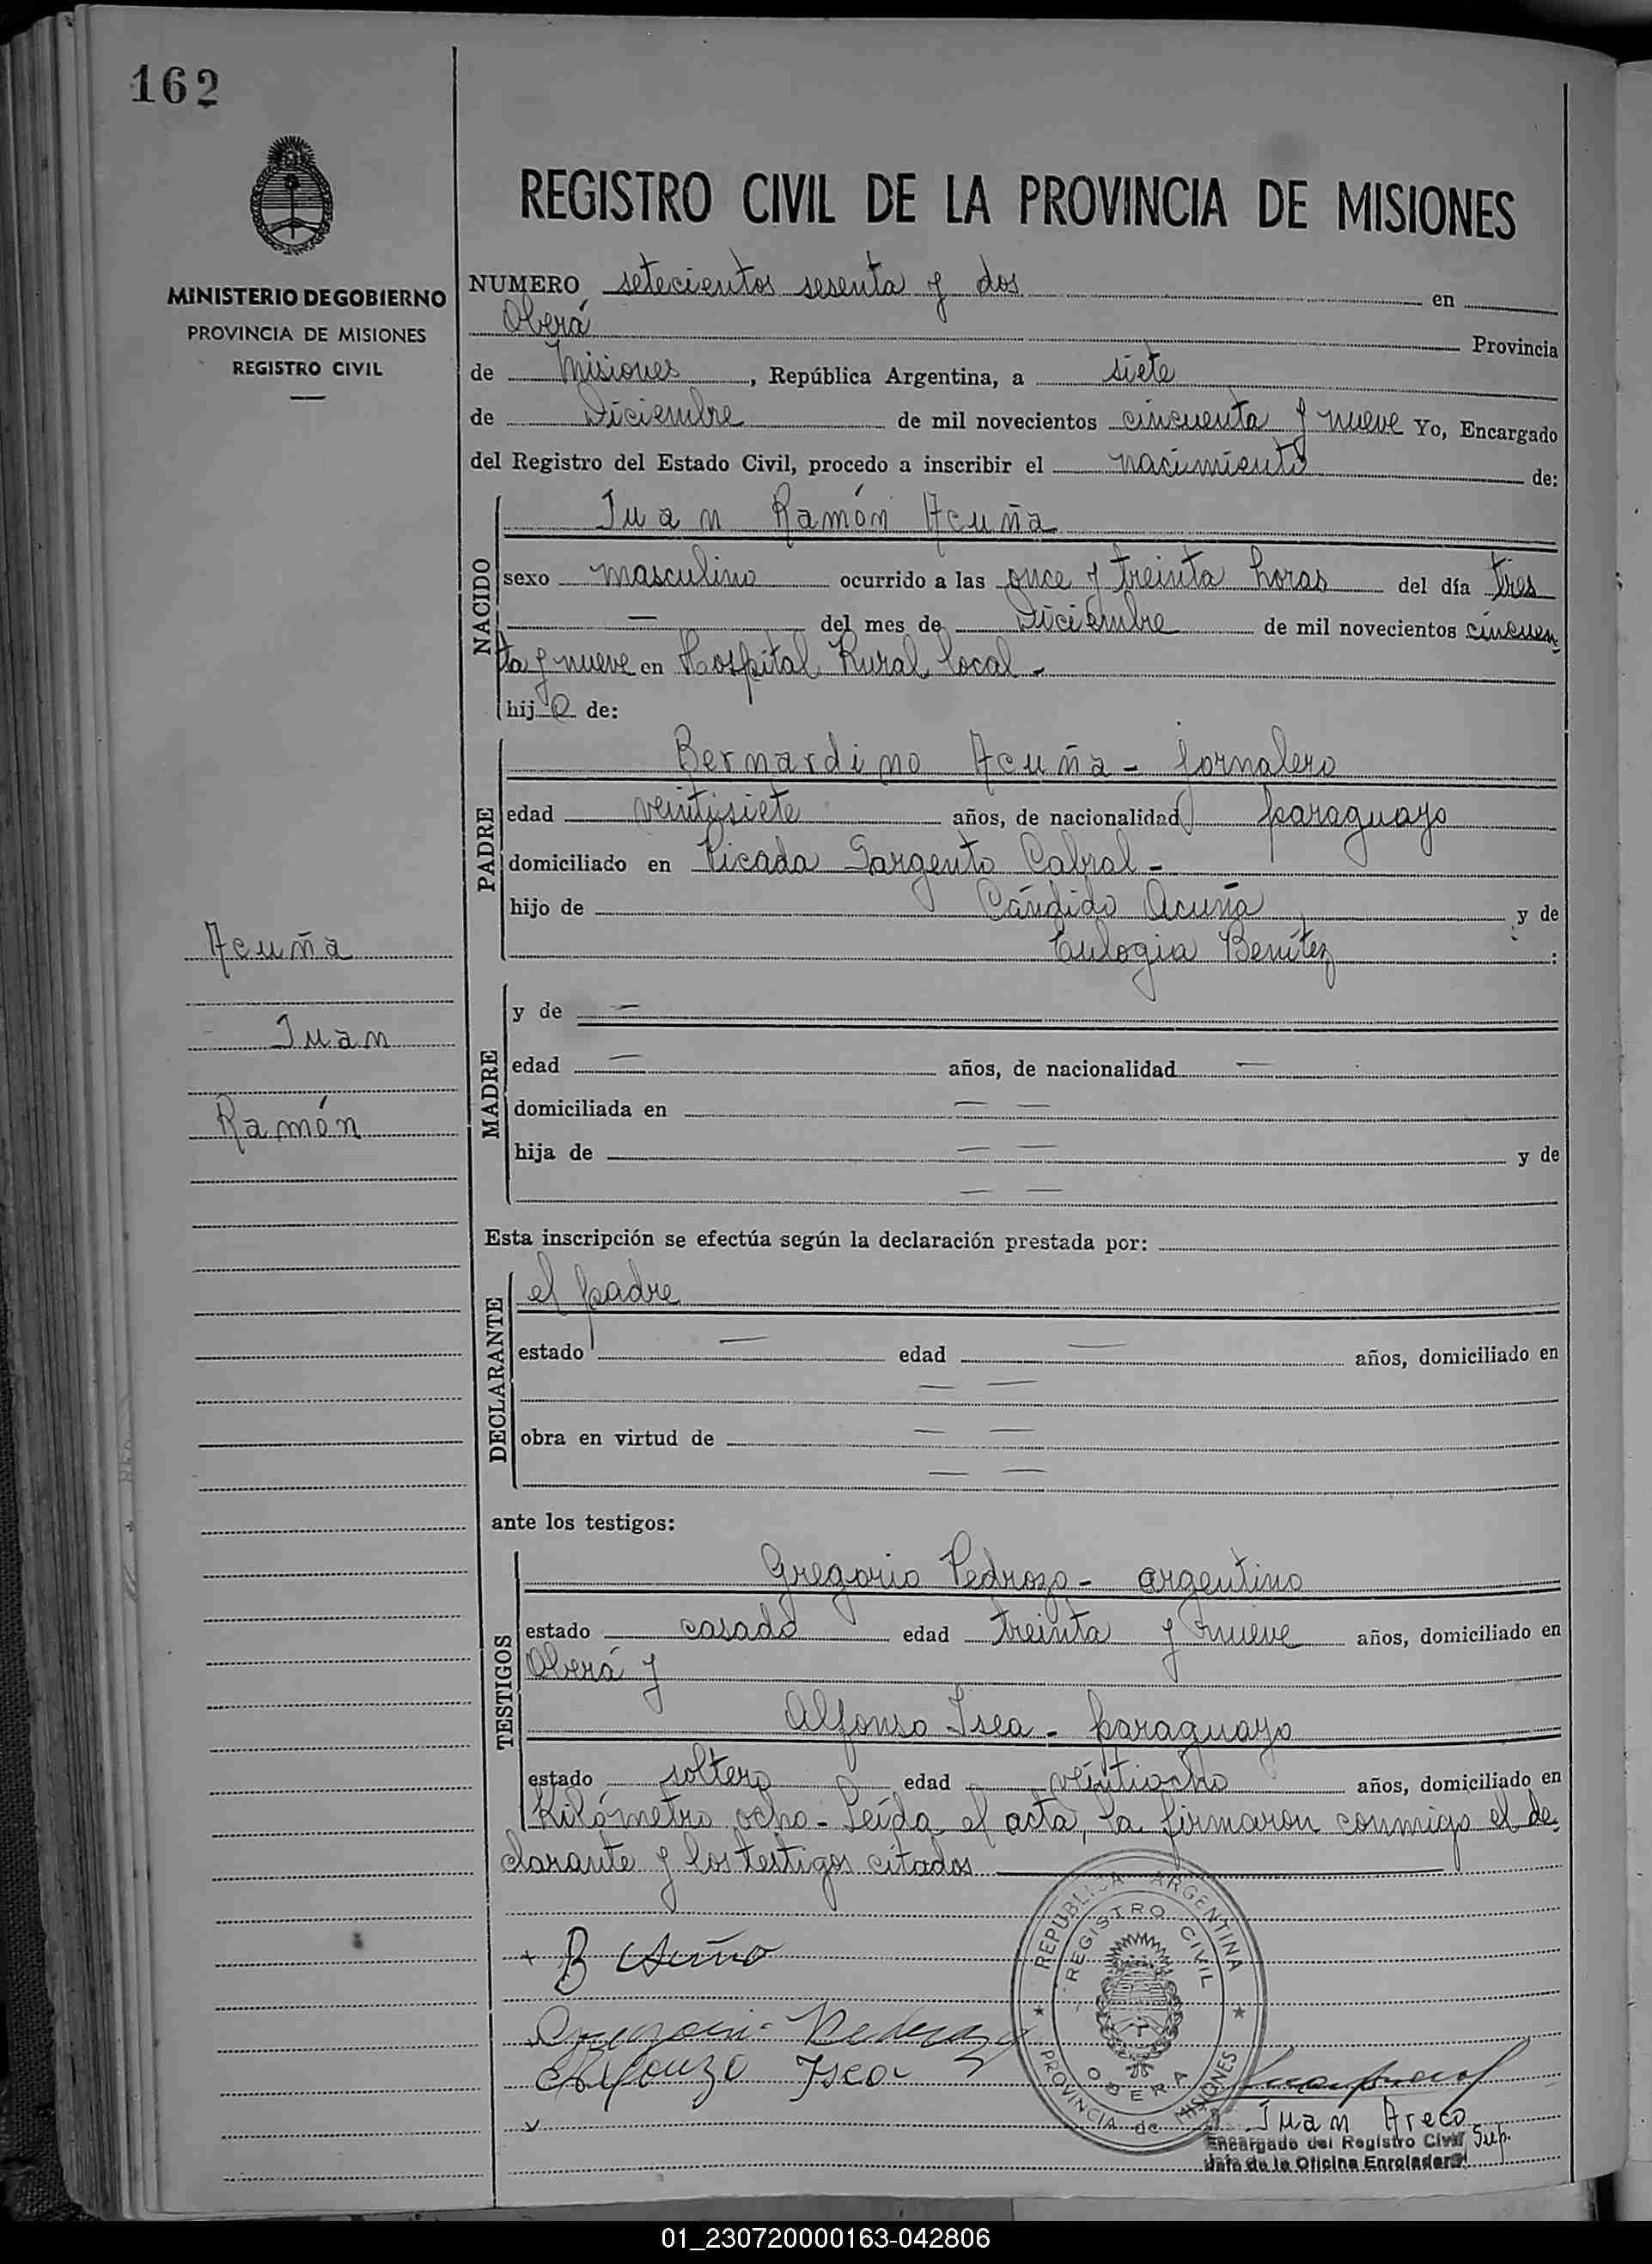 162
MINISTERIO DE GOBIERNO
PROVINCIA DE MISIONES
REGISTRO CIVIL
REGISTRO CIVIL DE LA PROVINCIA DE MISIONES
NUMERO setecientos sesenta y dos en
Oberá Provincia
de Misiones, República Argentina, a siete
de Diciembre de mil novecientos cincuenta y nueve Yo, Encargado
del Registro del Estado Civil, procedo a inscribir el nacimiento de:
NACIDO
Juan Ramón Acuña
sexo masculino ocurrido a las once y treinta horas del día tres
— del mes de Diciembre de mil novecientos cincuen
ta y nueve en Hospital Rural local -
hijo de:
PADRE
Bernardino Acuña - jornalero
edad veintisiete años, de nacionalidad paraguayo
domiciliado en Picada Sargento Cabral -
hijo de Cándido Acuña y de
Eulogia Benítez :
Acuña
Juan
Ramón
MADRE
y de —
edad — años, de nacionalidad —
domiciliada en — —
hija de — — y de
— —
Esta inscripción se efectúa según la declaración prestada por:
DECLARANTE
el padre
estado — edad — años, domiciliado en
— —
obra en virtud de — —
— —
ante los testigos:
TESTIGOS
Gregorio Pedrozo - argentino
estado casado edad treinta y nueve años, domiciliado en
Oberá y
Alfonso Isea - paraguayo
estado soltero edad veintiocho años, domiciliado en
Kilómetro ocho - Leída el acta, la firmaron conmigo el de
clarante y los testigos citados
+ B Acuña
Gregorio Pedrozo
Alfonzo Isea
REPUBLICA ARGENTINA
REGISTRO CIVIL
OBERA
PROVINCIA de MISIONES
Juan Areco
Encargado del Registro Civil Sup.
Jefe de la Oficina Enroladora
01_230720000163-042806